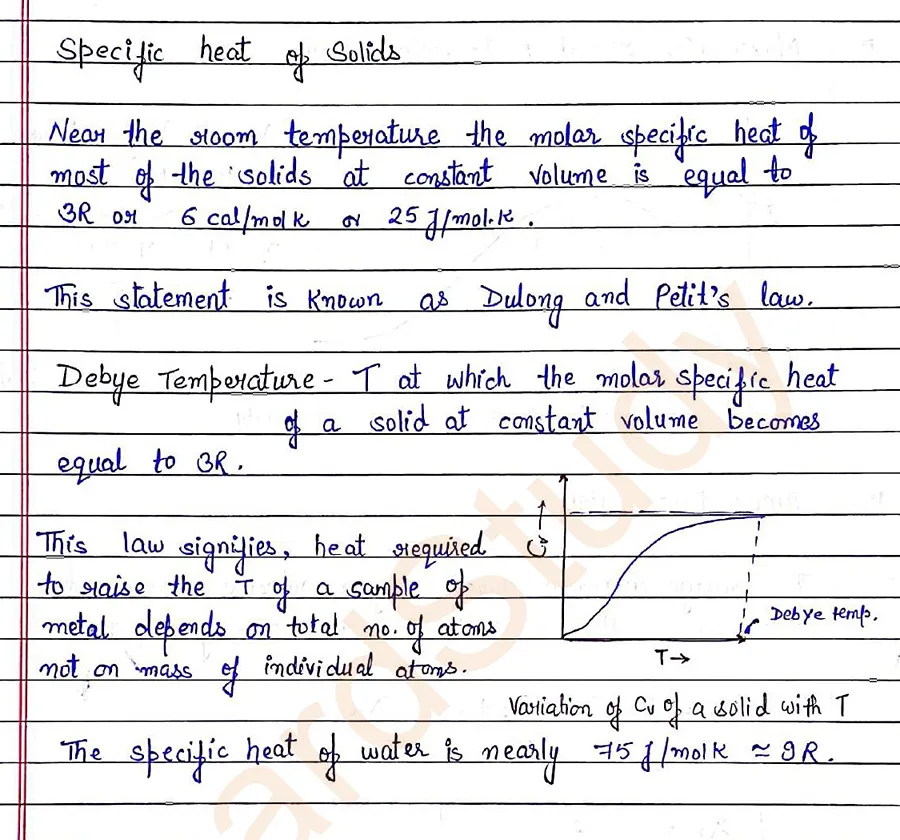 Specific heat of Solids
Near the room temperature the molar specific heat of
most of the solids at constant volume is equal to
3R or 6 cal/mol K or 25 J/mol.K.
This statement is Known as Dulong and Petit's law.
Debye Temperature - T at which the molar specific heat
of a solid at constant volume becomes
equal to 3R.
This law signifies, heat required
to raise the T of a sample of
metal depends on total no. of atoms
not on mass of individual atoms.
Cv →
Debye temp.
T→
Variation of Cv of a solid with T
The specific heat of water is nearly 75 J/mol K ≈ 9R.
ardstudy